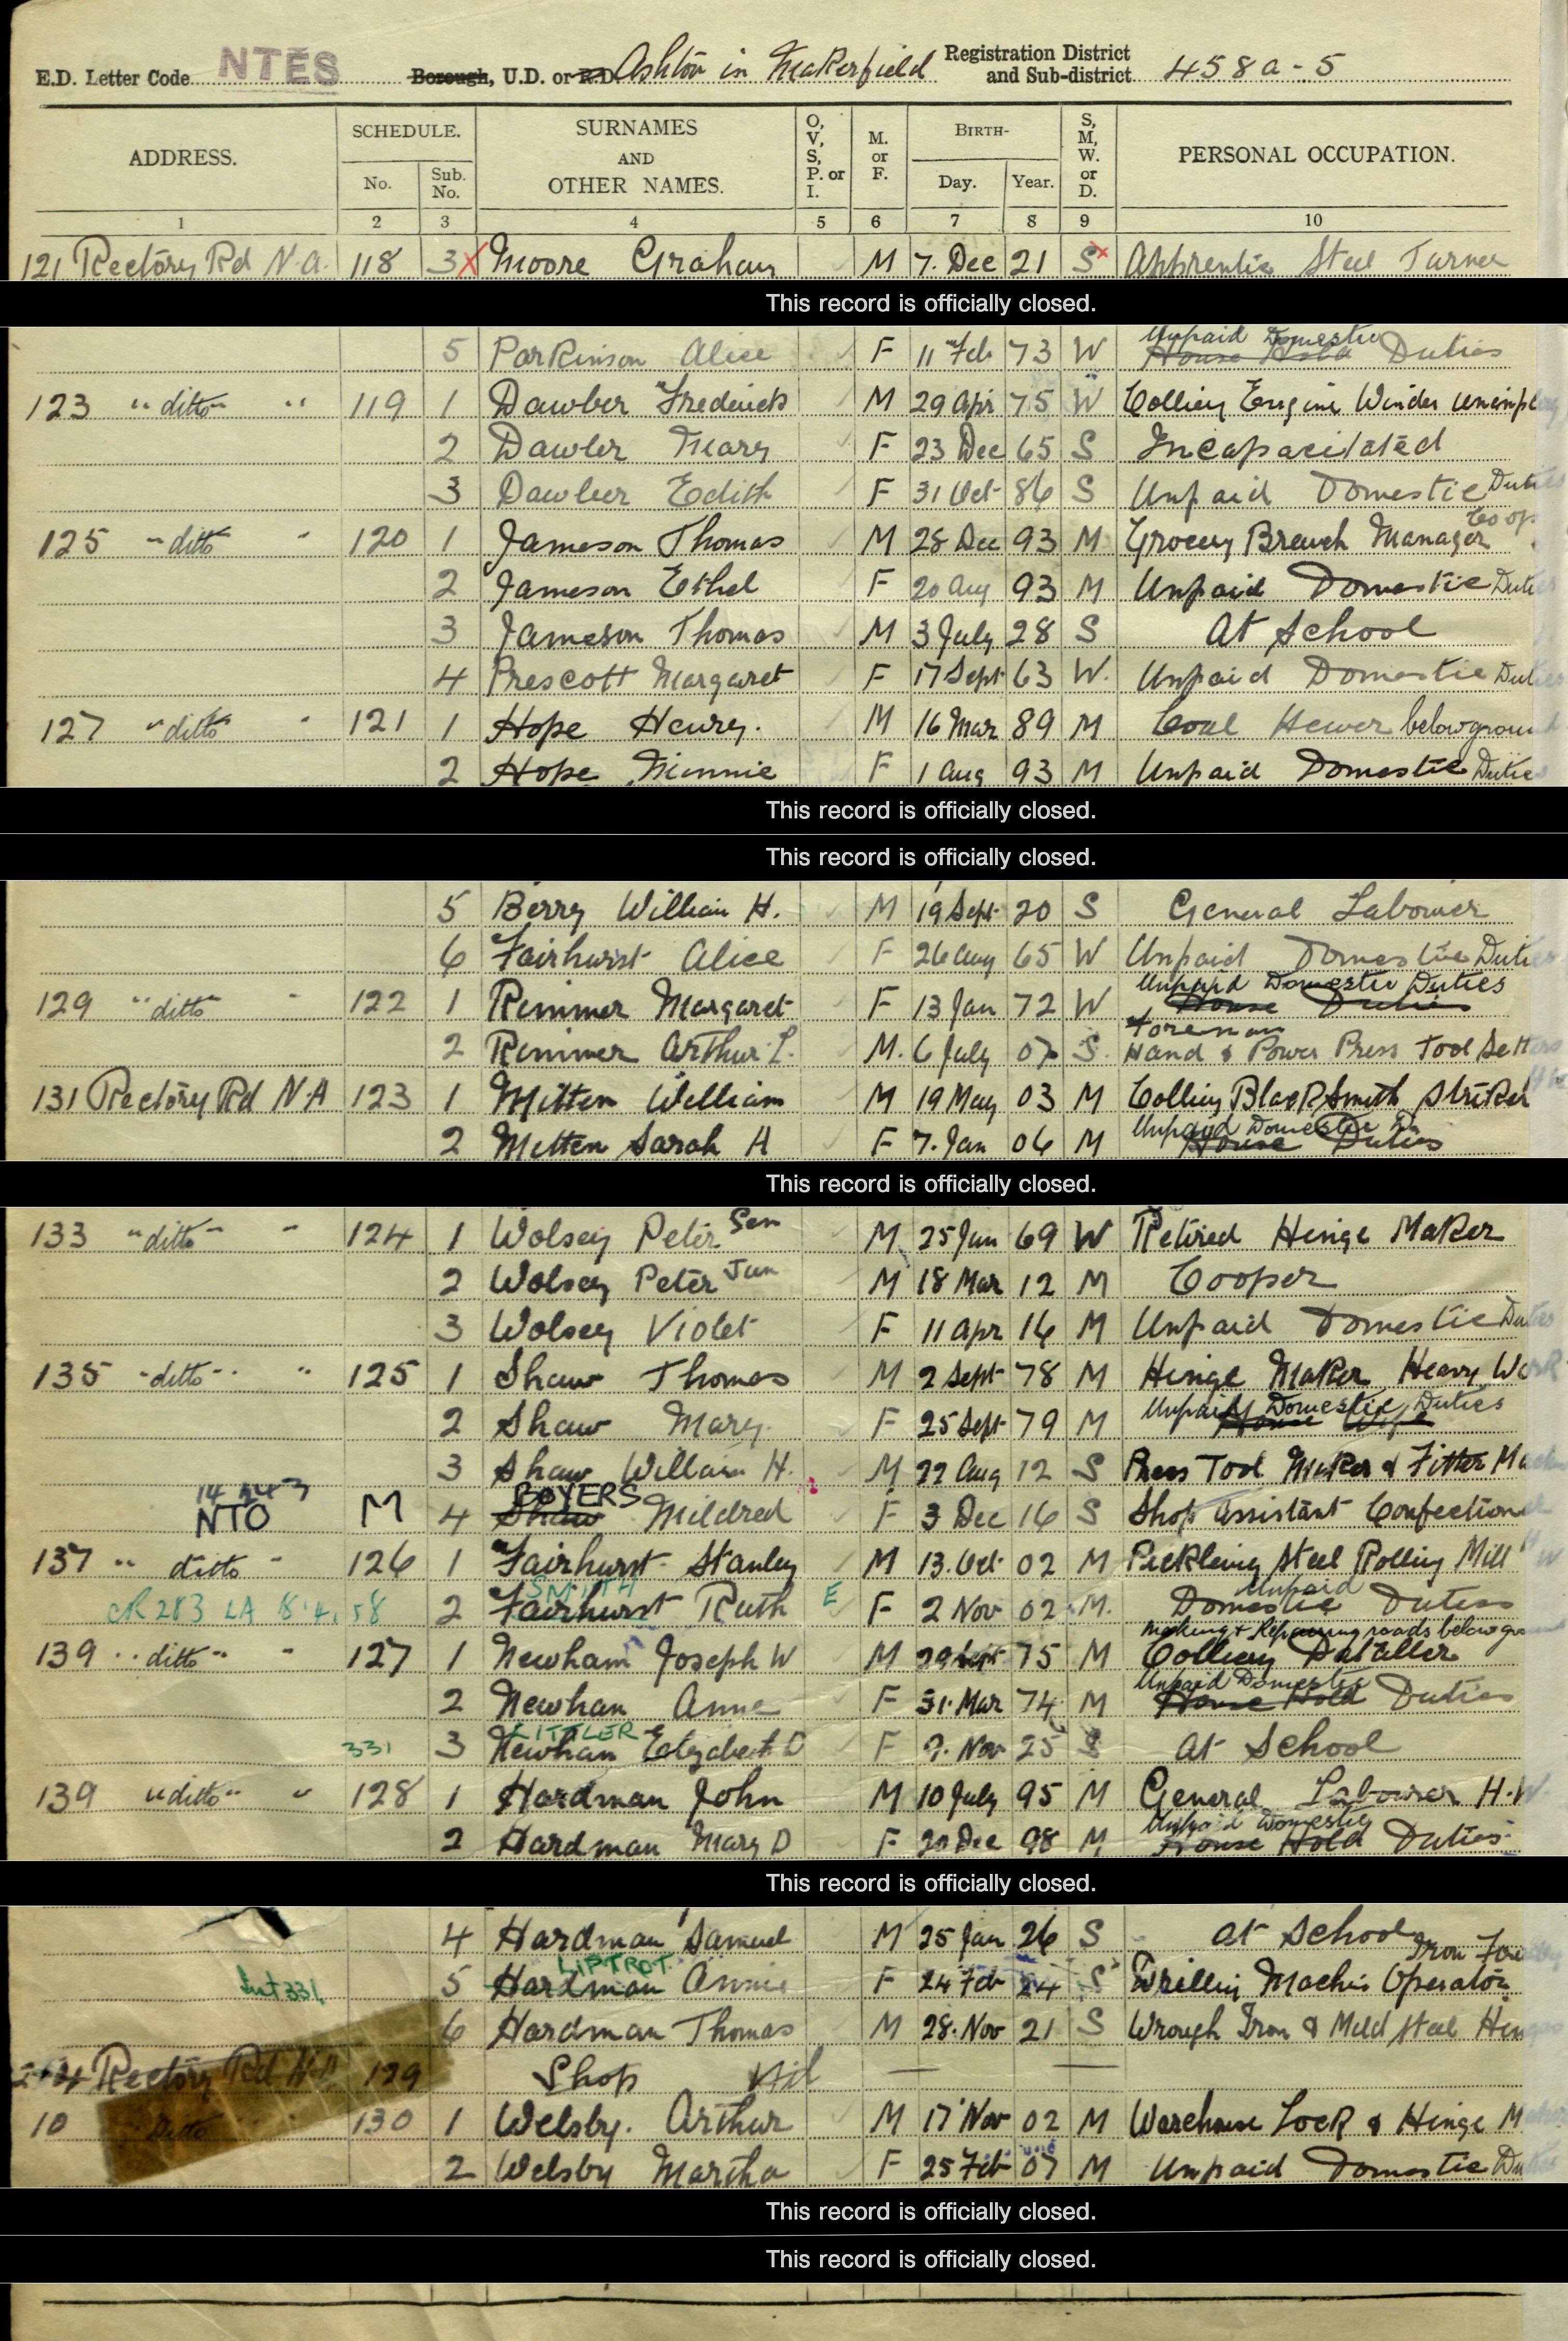 E.D. Letter Code NTES Borough, U.D. or R.D. Ashton in Makerfield Registration District and Sub-district 458a-5
ADDRESS. SCHEDULE. No. Sub. No. SURNAMES AND OTHER NAMES. O, V, S, P. or I. M. or F. BIRTH- Day. Year. S, M, W. or D. PERSONAL OCCUPATION.
1 2 3 4 5 6 7 8 9 10
121 Rectory Rd N.A. 118 3 Moore Graham M 7. Dec 21 S Apprentice Steel Turner
This record is officially closed.
Unpaid Domestic
5 Parkinson Alice F 11 Feb 73 W House Hold Duties
123 " ditto " " 119 1 Dawber Frederick M 29 Apr 75 W Colliery Engine Winder unempl
2 Dawber Mary F 23 Dec 65 S Incapacitated
3 Dawber Edith F 31 Oct 86 S Unpaid Domestic Duties
125 " ditto " 120 1 Jameson Thomas M 28 Dec 93 M Grocery Branch Manager Co op
2 Jameson Ethel F 20 Aug 93 M Unpaid Domestic Duties
3 Jameson Thomas M 3 July 28 S At School
4 Prescott Margaret F 17 Sept 63 W. Unpaid Domestic Duties
127 " ditto " 121 1 Hope Henry. M 16 Mar 89 M Coal Hewer below ground
2 Hope Minnie F 1 Aug 93 M Unpaid Domestic Duties
This record is officially closed.
This record is officially closed.
5 Berry William H. M 19 Sept 20 S General Labourer
6 Fairhurst Alice F 26 Aug 65 W Unpaid Domestic Duties
Unpaid Domestic Duties
129 " ditto " 122 1 Rimmer Margaret F 13 Jan 72 W House Duties
Foreman
2 Rimmer Arthur L. M. 6 July 07 S. Hand & Power Press Tool Setters
131 Rectory Rd N.A 123 1 Mitten William M 19 May 03 M Colliery BlackSmith Striker
Unpaid Domestic D
2 Mitten Sarah H F 7. Jan 06 M House Duties
This record is officially closed.
133 " ditto " " 124 1 Wolsey Peter Sen M 25 Jan 69 W Retired Hinge Maker
2 Wolsey Peter Jun M 18 Mar 12 M Cooper
3 Wolsey Violet F 11 Apr 16 M Unpaid Domestic Duties
135 " ditto " " 125 1 Shaw Thomas M 2 Sept 78 M Hinge Maker Heavy Work
Unpaid Domestic Duties
2 Shaw Mary. F 25 Sept 79 M House Wife
3 Shaw William H. M 22 Aug 12 S Press Tool Maker & Fitter
BOYERS
NTO M 4 Shaw Mildred F 3 Dec 16 S Shop Assistant Confectioner
137 " ditto " 126 1 Fairhurst Stanley M 13. Oct 02 M Pickling Steel Rolling Mill H W
SMITH Unpaid
CR 283 LA 18.4.58 2 Fairhurst Ruth E F 2 Nov 02 M. Domestic Duties
Making & Repairing roads below
139 " ditto " " 127 1 Newham Joseph W M 29 Sept 75 M Colliery Dataller
Unpaid Domestic
2 Newham Anne F 31. Mar 74 M House Hold Duties
LITTLER
331 3 Newham Elizabeth D F 9. Nov 25 S At School
139 " ditto " " 128 1 Hardman John M 10 July 95 M General Labourer H.W.
Unpaid Domestic
2 Hardman Mary D F 20 Dec 98 M House Hold Duties
This record is officially closed.
4 Hardman Samuel M 25 Jan 26 S at School
LIPTROT Iron
331 5 Hardman Annie F 24 Feb 24 S Drilling Machine Operator
6 Hardman Thomas M 28. Nov 21 S Wrough Iron & Mild Steel
Rectory Rd N.A 129 Shop Nil
10 Ditto 130 1 Welsby. Arthur M 17 Nov 02 M Warehouse Lock & Hinge
2 Welsby Martha F 25 Feb 07 M Unpaid Domestic
This record is officially closed.
This record is officially closed.